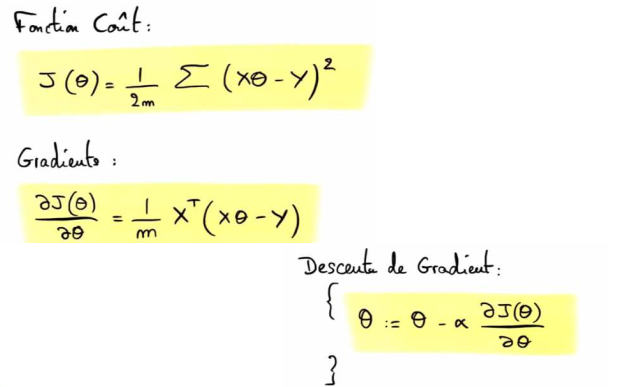 Fonction Coût:
J(θ) = 1/2m Σ (Xθ - Y)²
Gradients:
∂J(θ)/∂θ = 1/m Xᵀ(Xθ - Y)
Descente de Gradient:
{
θ := θ - α ∂J(θ)/∂θ
}